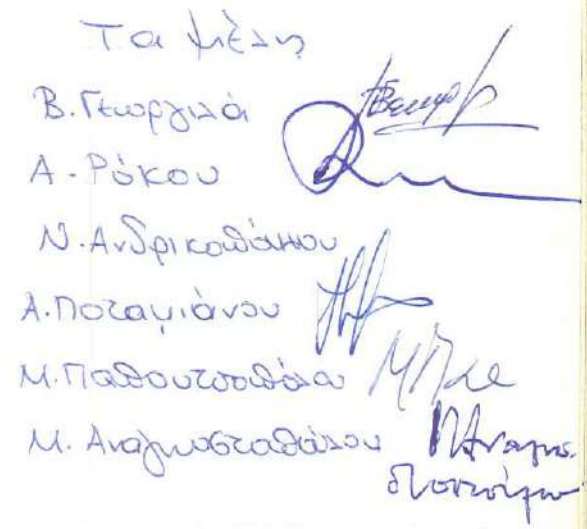 Τα μέλη
Β. Γεωργιλά
Α. Ρόκου
Ν. Ανδρικοπούλου
Α. Ποταμιάνου
Μ. Παπουτσοπούλου
Μ. Αναγνωστοπούλου